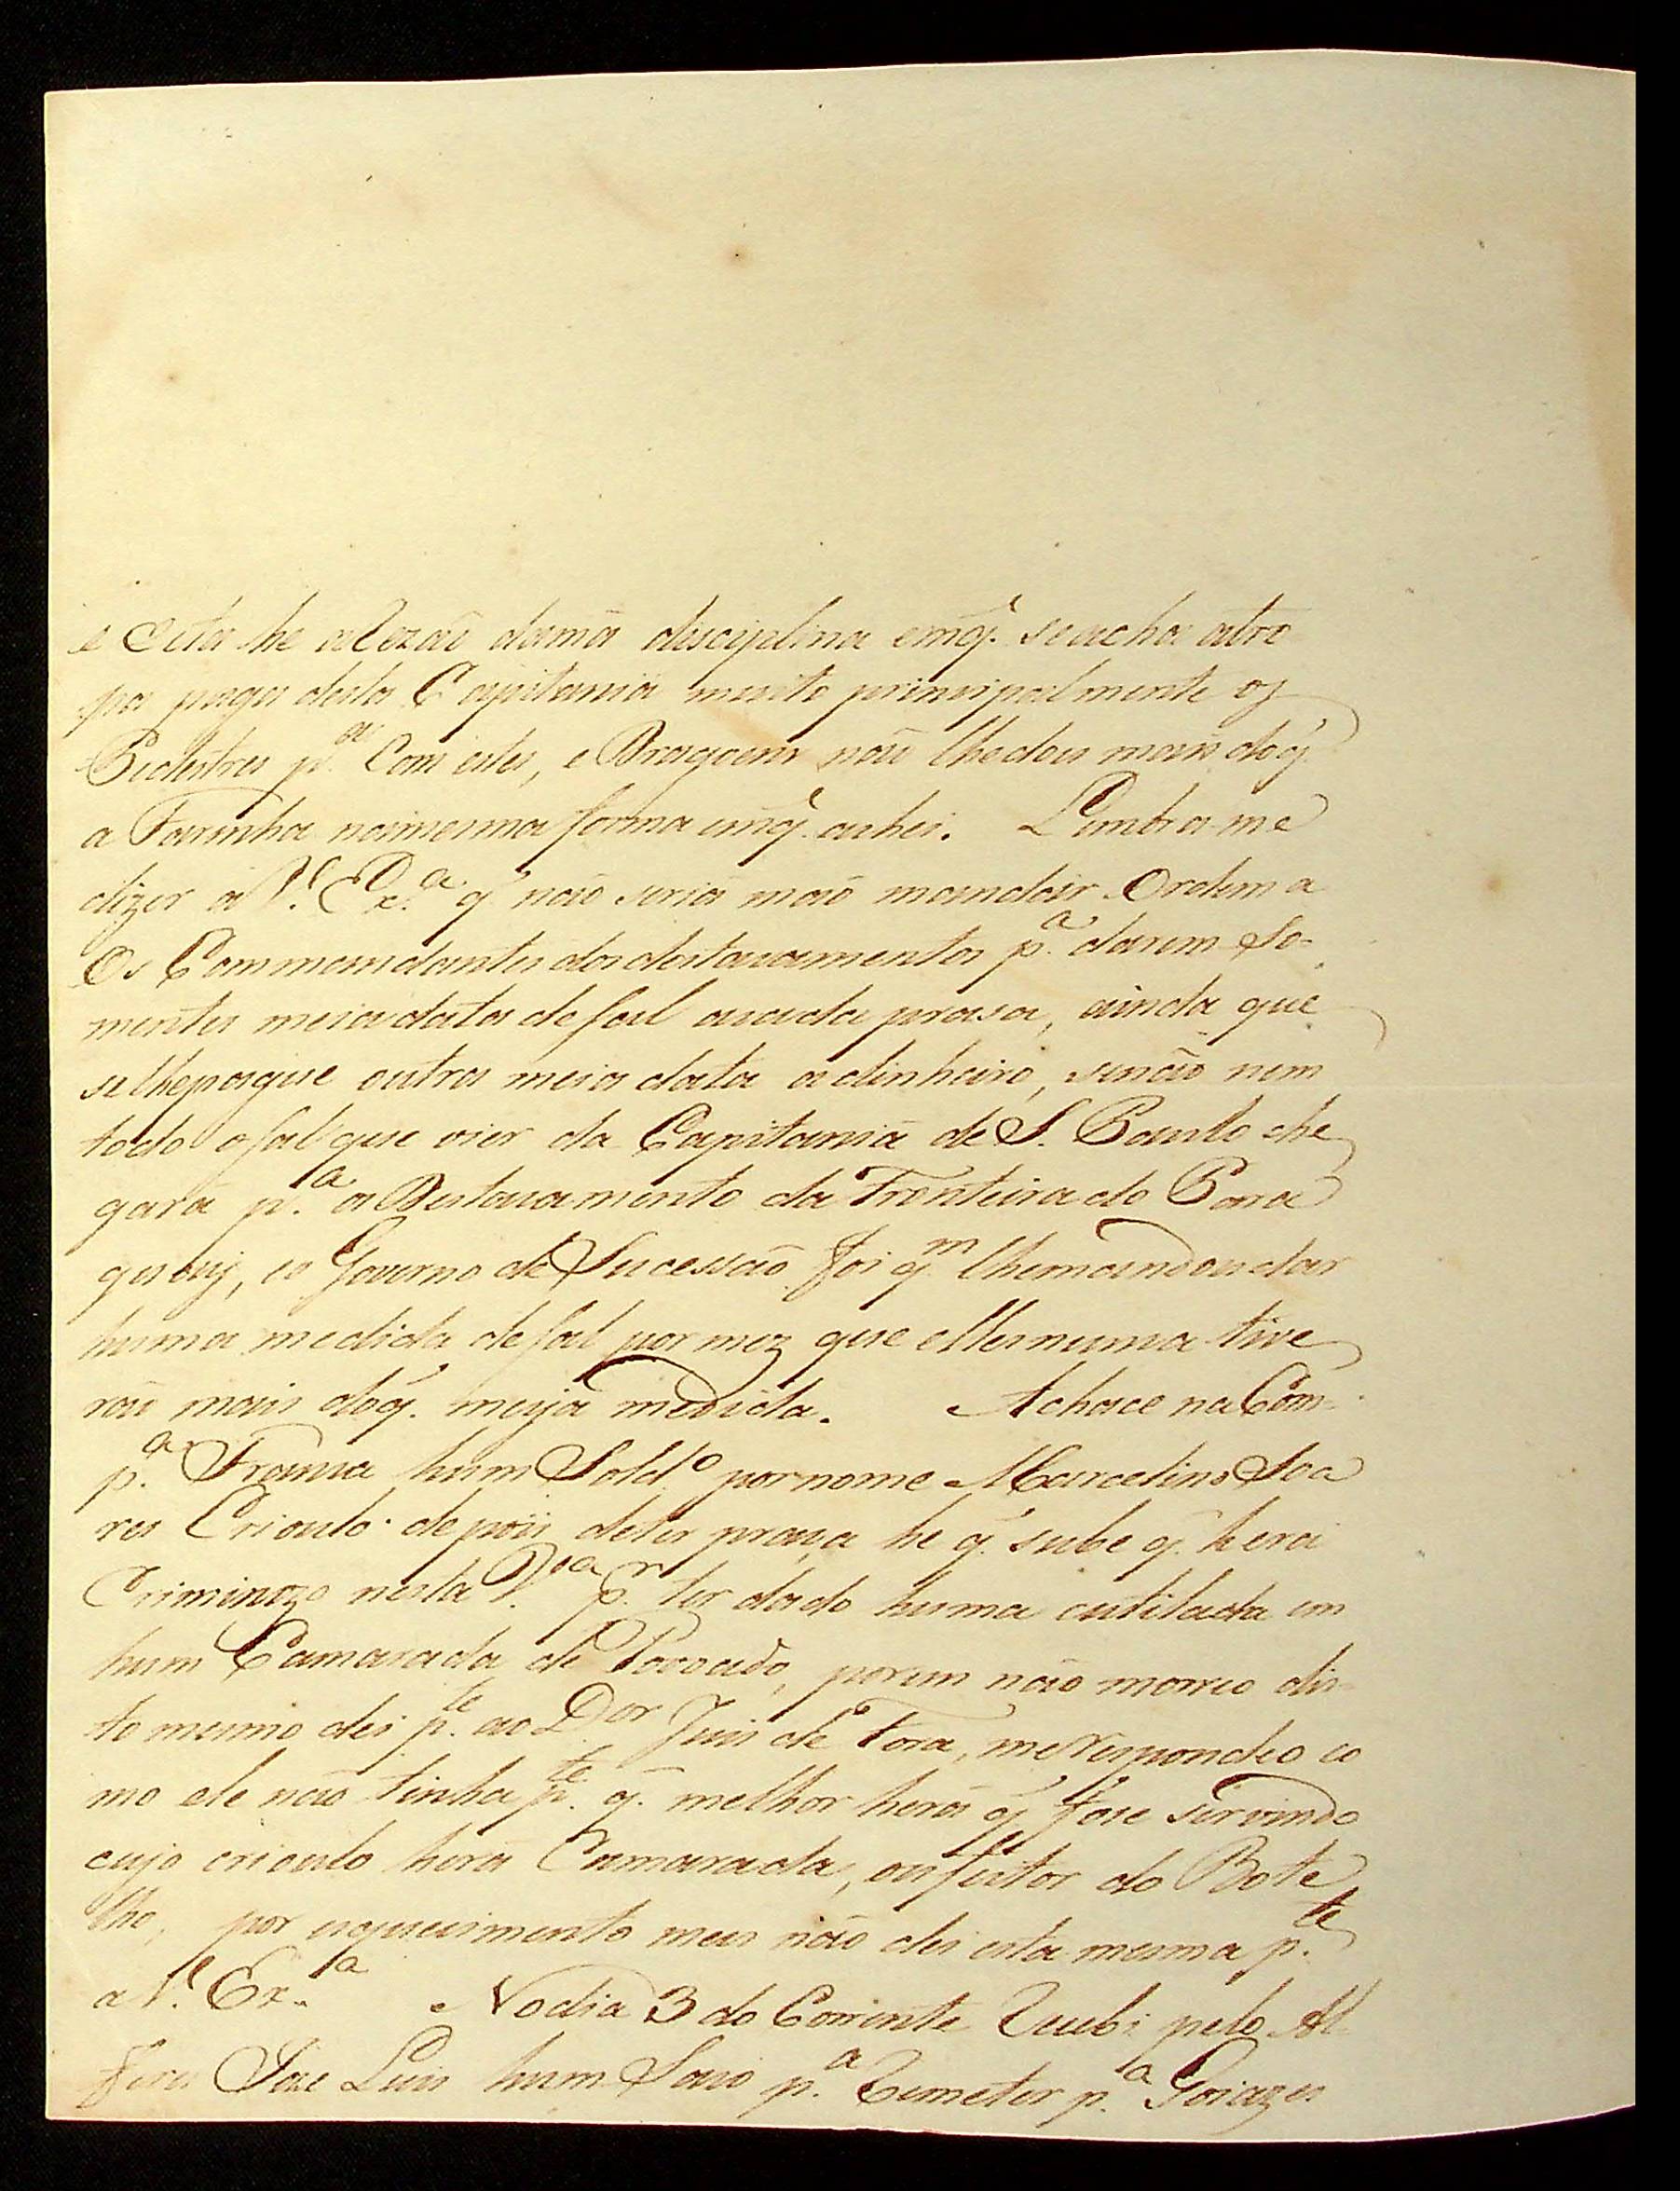 e Esta he aRezaõ damá disciplina emq̃. seacha atro
pa paga desta Capitania muito principalmente os
Pedestres p.ª Com estes, e Dragoens naõ lhedou mais doq̃.
a Farinha namesma forma emq̃. achei. Lembra-me
dizer a V. Ex.ª q̃ não seria máo mandár Ordem a
Os Commandantes dosdestacamentos p.ª darem So-
mentes meiadata deSal acada prasa, ainda que
selhepague outra meia data adinheiro, senão nem
todo oSal que vier da Capitania de S. Paulo che
gará p.ª o Destacamento da Fronteira do Para
guay, eo Governo de Sucessão foi q.m lhemandou dar
huma medida deSal por mez que ellesnunca tive
raõ mais doq̃. meya medida. Achace na Com-
p.ª Franca hum Sold.º pornome Marcelino Soa
res Crioulo depois deter praça he q̃. sube q̃. hera
Criminozo nesta V.ª p.r ter dado huma cutilada em
hum Camarada de Povoado, porem não morreo dis-
to mesmo dei p.te ao D.or Juis de Fora, meRespondeo co
mo ele não tinha p.te q̃. melhor hera q̃ fose servindo
cujo crioulo hera Camarada, ou feitor do Bote
lho, por esquecimento meu não dei esta mesma p.te
a V. Ex.ª Nodia 3 do Corrente Recebi pelo Al-
feres Jose Luis hum Saco p.ª Remeter p.ª Goiazes